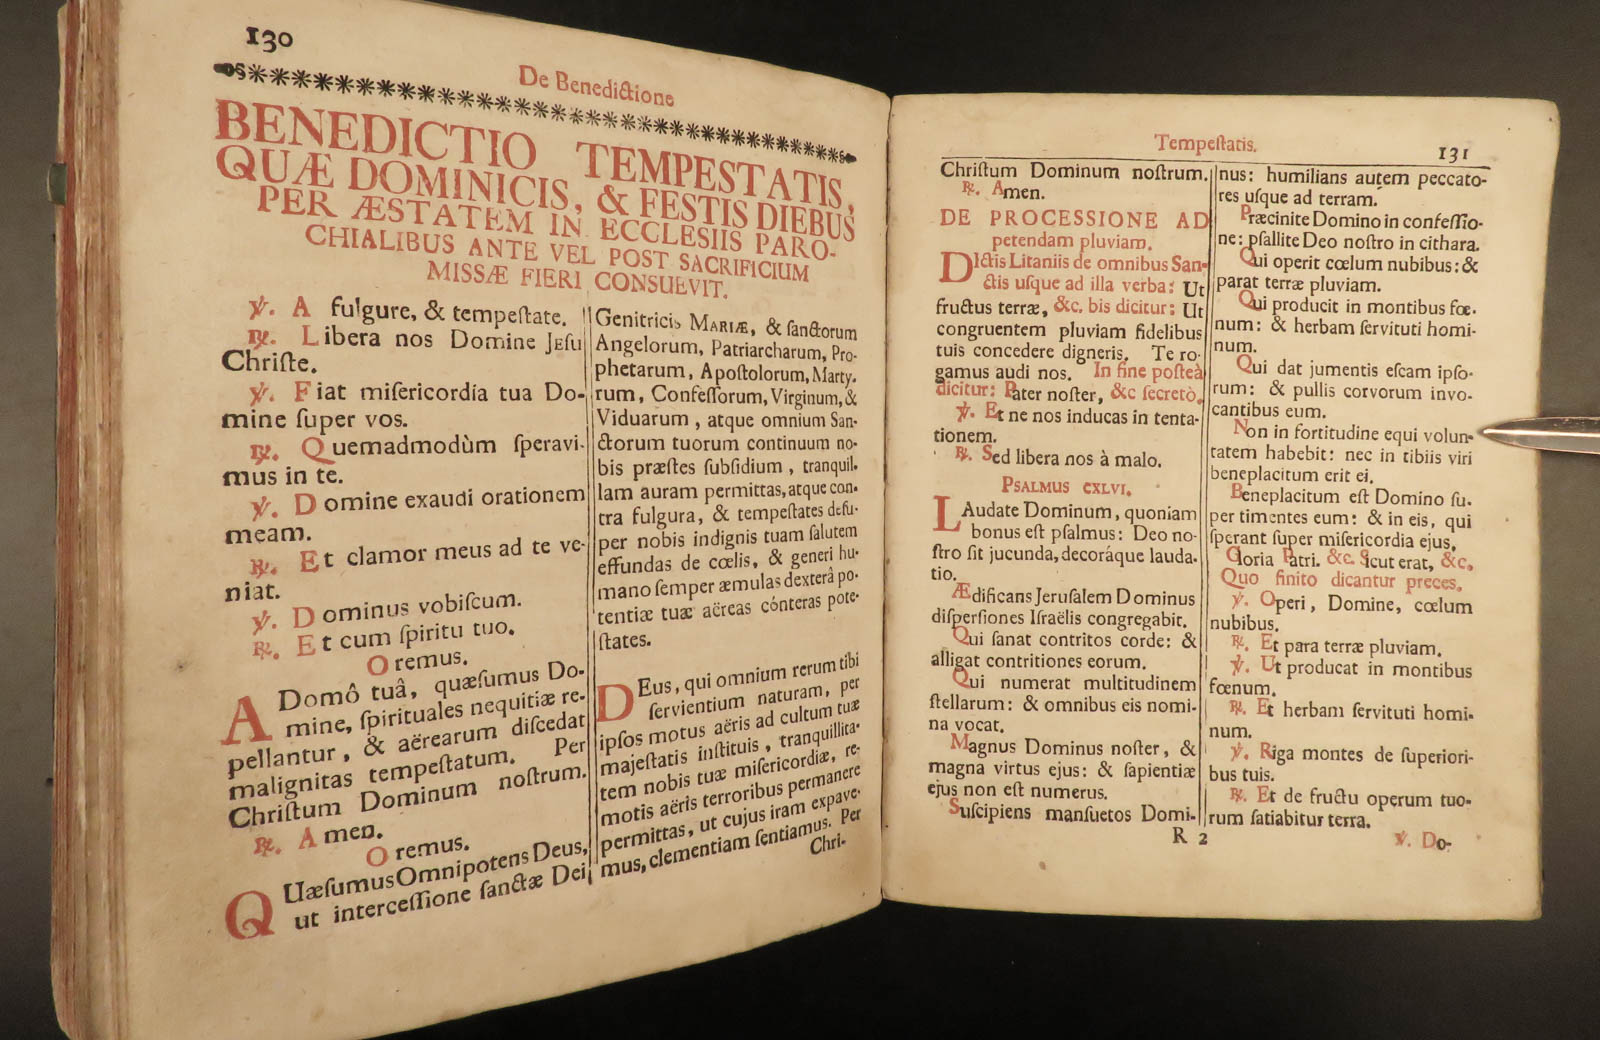 130
De Benedictione
BENEDICTIO TEMPESTATIS,
QUÆ DOMINICIS, & FESTIS DIEBUS
PER ÆSTATEM IN ECCLESIIS PARO-
CHIALIBUS ANTE VEL POST SACRIFICIUM
MISSÆ FIERI CONSUEVIT.
℣. A fulgure, & tempeſtate.
℟. Libera nos Domine JESU
Chriſte.
℣. Fiat miſericordía tua Do-
mine ſuper vos.
℟. Quemadmodùm ſperavi-
mus in te.
℣. Domine exaudi orationem
meam.
℟. Et clamor meus ad te ve-
niat.
℣. Dominus vobiſcum.
℟. Et cum ſpiritu tuo.
Oremus.
A Domô tuâ, quæſumus Do-
mine, ſpirituales nequitiæ re-
pellantur, & aërearum diſcedat
malignitas tempeſtatum. Per
Chriſtum Dominum noſtrum.
℟. Amen.
Oremus.
QUæſumus Omnipotens Deus,
ut interceſſione ſanctæ Dei
Genitricis MARIÆ, & ſanctorum
Angelorum, Patriarcharum, Pro-
phetarum, Apoſtolorum, Marty-
rum, Confeſſorum, Virginum, &
Viduarum, atque omnium San-
ctorum tuorum continuum no-
bis præſtes ſubſidium, tranquil-
lam auram permittas, atque con-
tra fulgura, & tempeſtates deſu-
per nobis indignis tuam ſalutem
effundas de cœlis, & generi hu-
mano ſemper æmulas dexterâ po-
tentiæ tuæ aëreas cónteras pote-
ſtates.
DEus, qui omnium rerum tibi
ſervientium naturam, per
ipſos motus aëris ad cultum tuæ
majeſtatis inſtituis, tranquillita-
tem nobis tuæ miſericordiæ, re-
motis aëris terroribus permanere
permittas, ut cujus iram expave-
mus, clementiam ſentiamus. Per
Chri-
Tempeſtatis.
131
Chriſtum Dominum noſtrum.
℟. Amen.
DE PROCESSIONE AD
petendam pluviam.
DIctis Litaniis de omnibus San-
ctis uſque ad illa verba: Ut
fructus terræ, &c. bis dicitur: Ut
congruentem pluviam fidelibus
tuis concedere digneris. Te ro-
gamus audi nos. In fine poſteà
dicitur: Pater noſter, &c ſecretò.
℣. Et ne nos inducas in tenta-
tionem.
℟. Sed libera nos à malo.
PSALMUS CXLVI.
LAudate Dominum, quoniam
bonus eſt pſalmus: Deo no-
ſtro ſit jucunda, decoráque lauda-
tio.
Ædificans Jeruſalem Dominus
diſperſiones Iſraëlis congregabit.
Qui ſanat contritos corde: &
alligat contritiones eorum.
Qui numerat multitudinem
ſtellarum: & omnibus eis nomi-
na vocat.
Magnus Dominus noſter, &
magna virtus ejus: & ſapientiæ
ejus non eſt numerus.
Suſcipiens manſuetos Domi-
R 2
nus: humilians autem peccato-
res uſque ad terram.
Præcinite Domino in confeſſio-
ne: pſallite Deo noſtro in cithara.
Qui operit cœlum nubibus: &
parat terræ pluviam.
Qui producit in montibus fœ-
num: & herbam ſervituti homi-
num.
Qui dat jumentis eſcam ipſo-
rum: & pullis corvorum invo-
cantibus eum.
Non in fortitudine equi volun-
tatem habebit: nec in tibiis viri
beneplacitum erit ei.
Beneplacitum eſt Domino ſu-
per timentes eum: & in eis, qui
ſperant ſuper miſericordia ejus.
Gloria Patri. &c. Sicut erat, &c.
Quo finito dicantur preces.
℣. Operi, Domine, cœlum
nubibus.
℟. Et para terræ pluviam.
℣. Ut producat in montibus
fœnum.
℟. Et herbam ſervituti homi-
num.
℣. Riga montes de ſuperiori-
bus tuis.
℟. Et de fructu operum tuo-
rum ſatiabitur terra.
℣. Do-